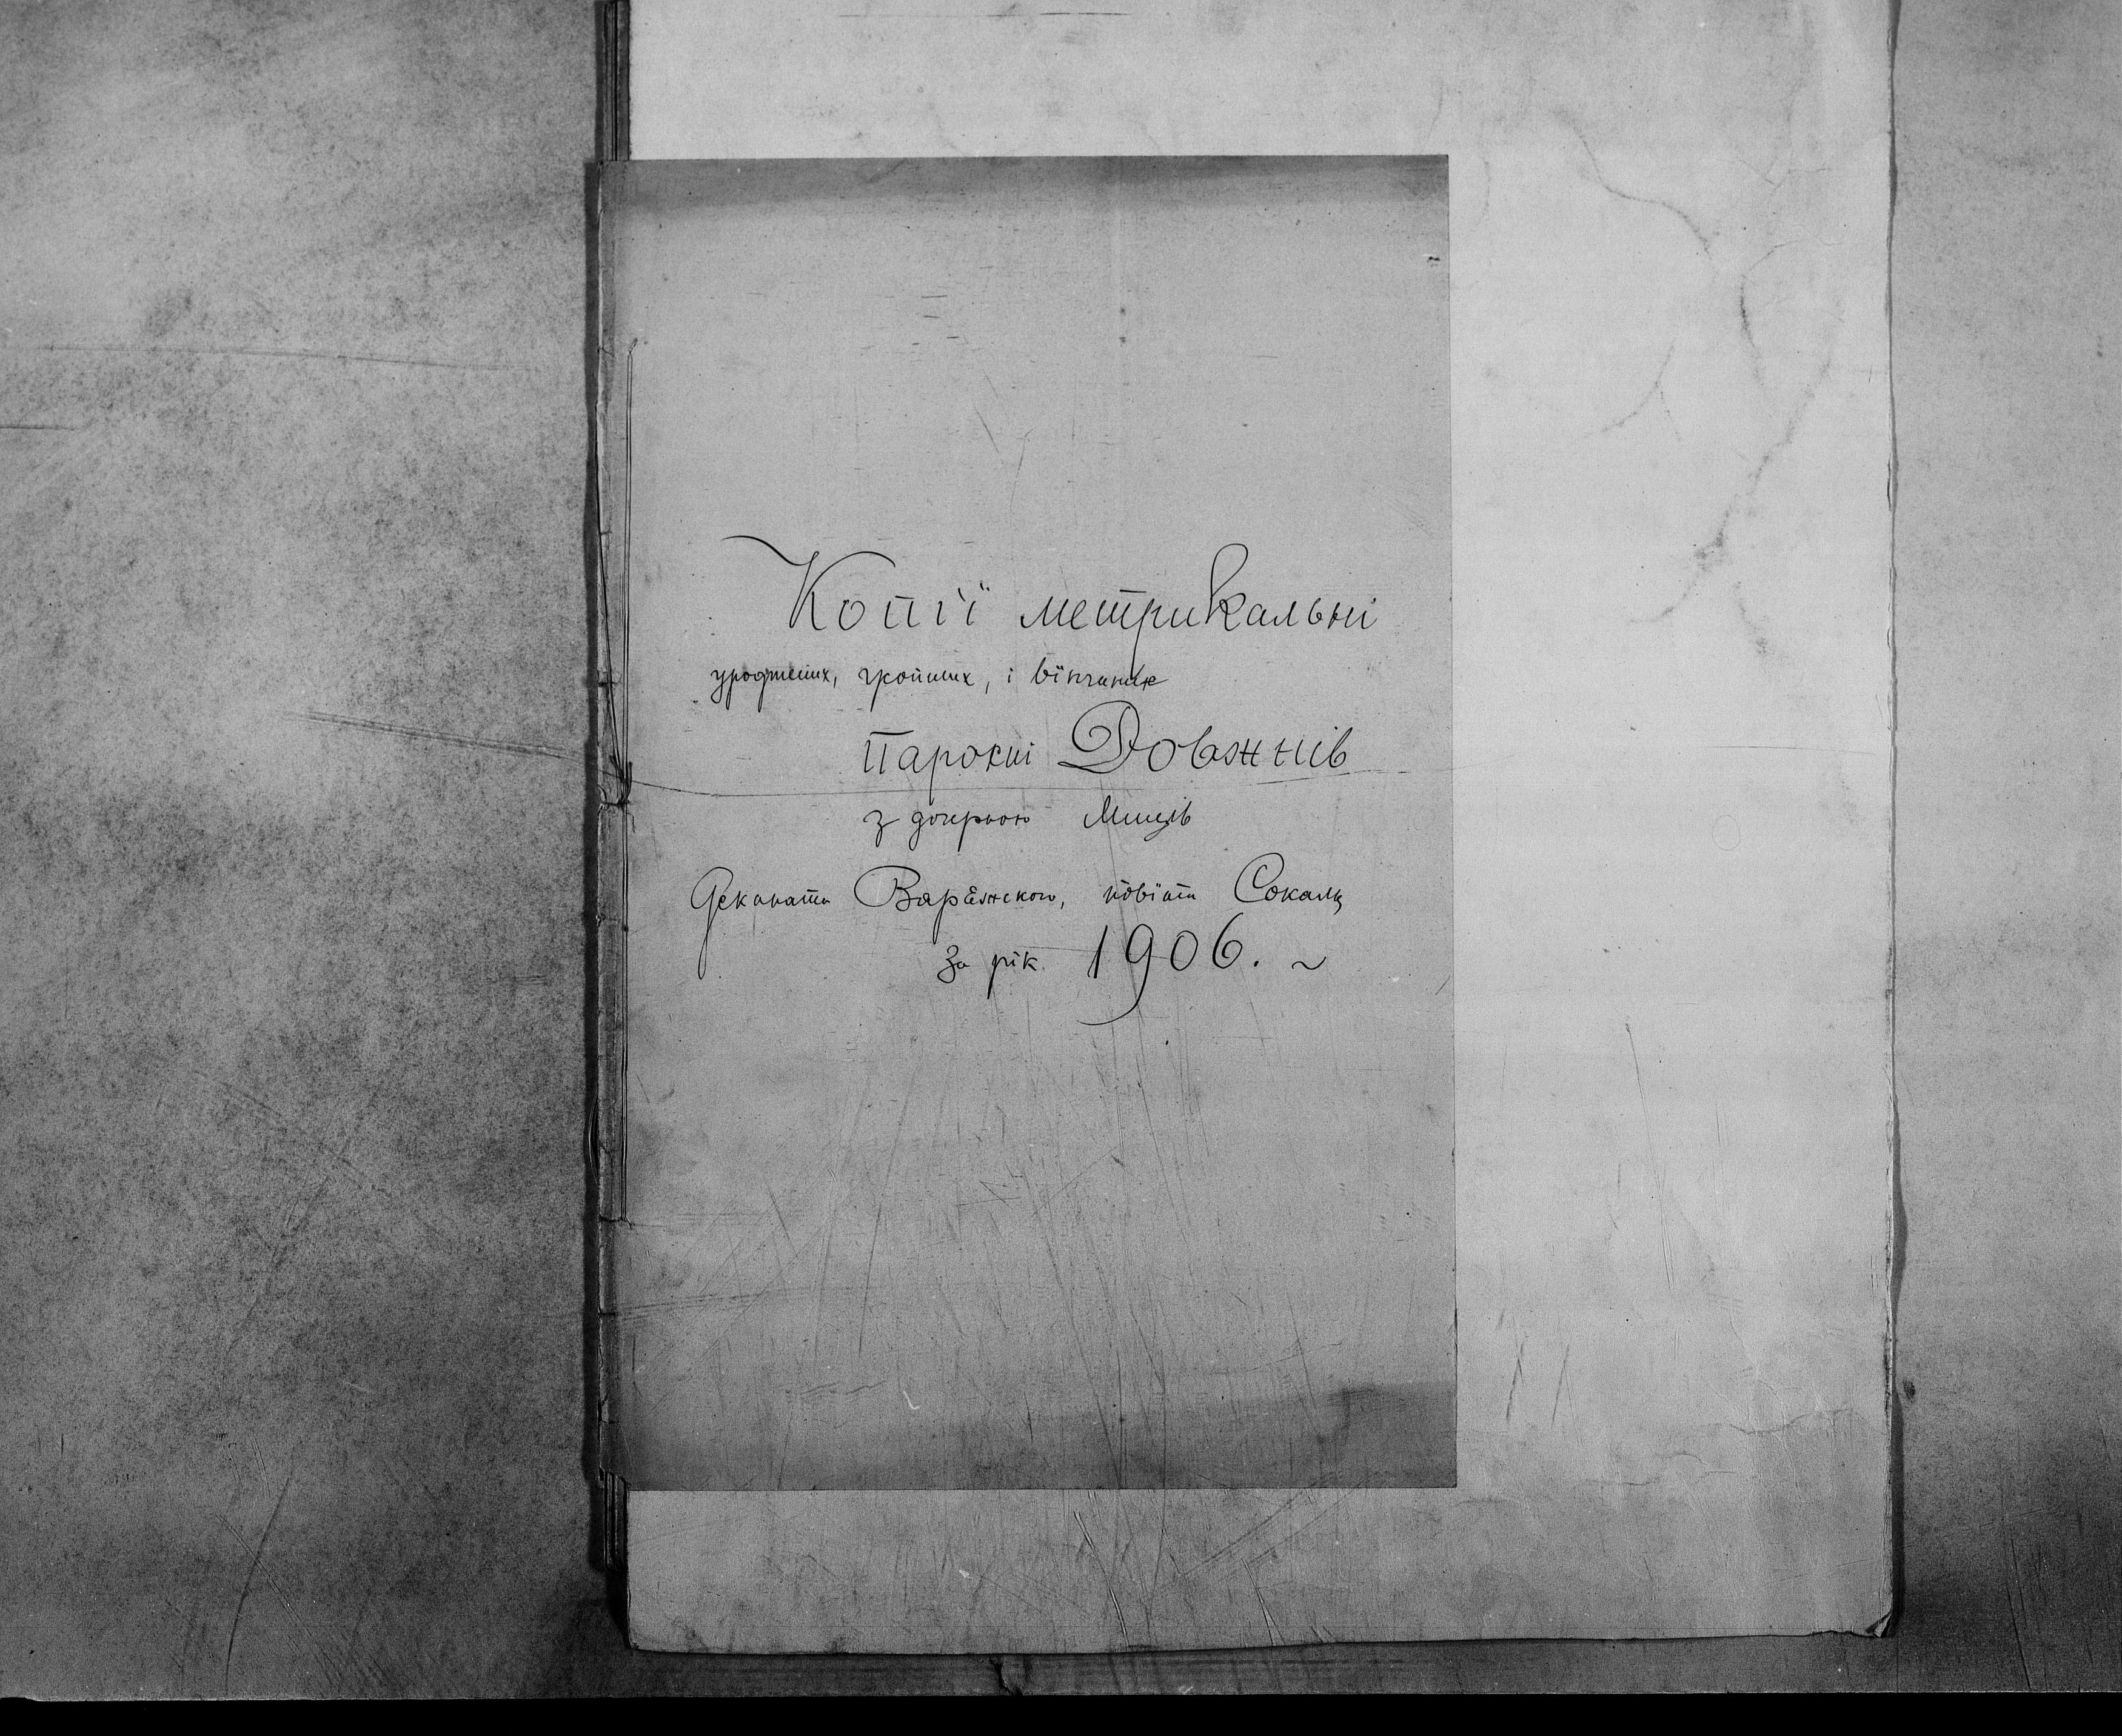 Копії метрикальні
уроджених, і вінчаних
Парохії Довжнів
з дочерною Мицїв
Деканата Варяжского, повіта Сокаль
за рік 1906. ~